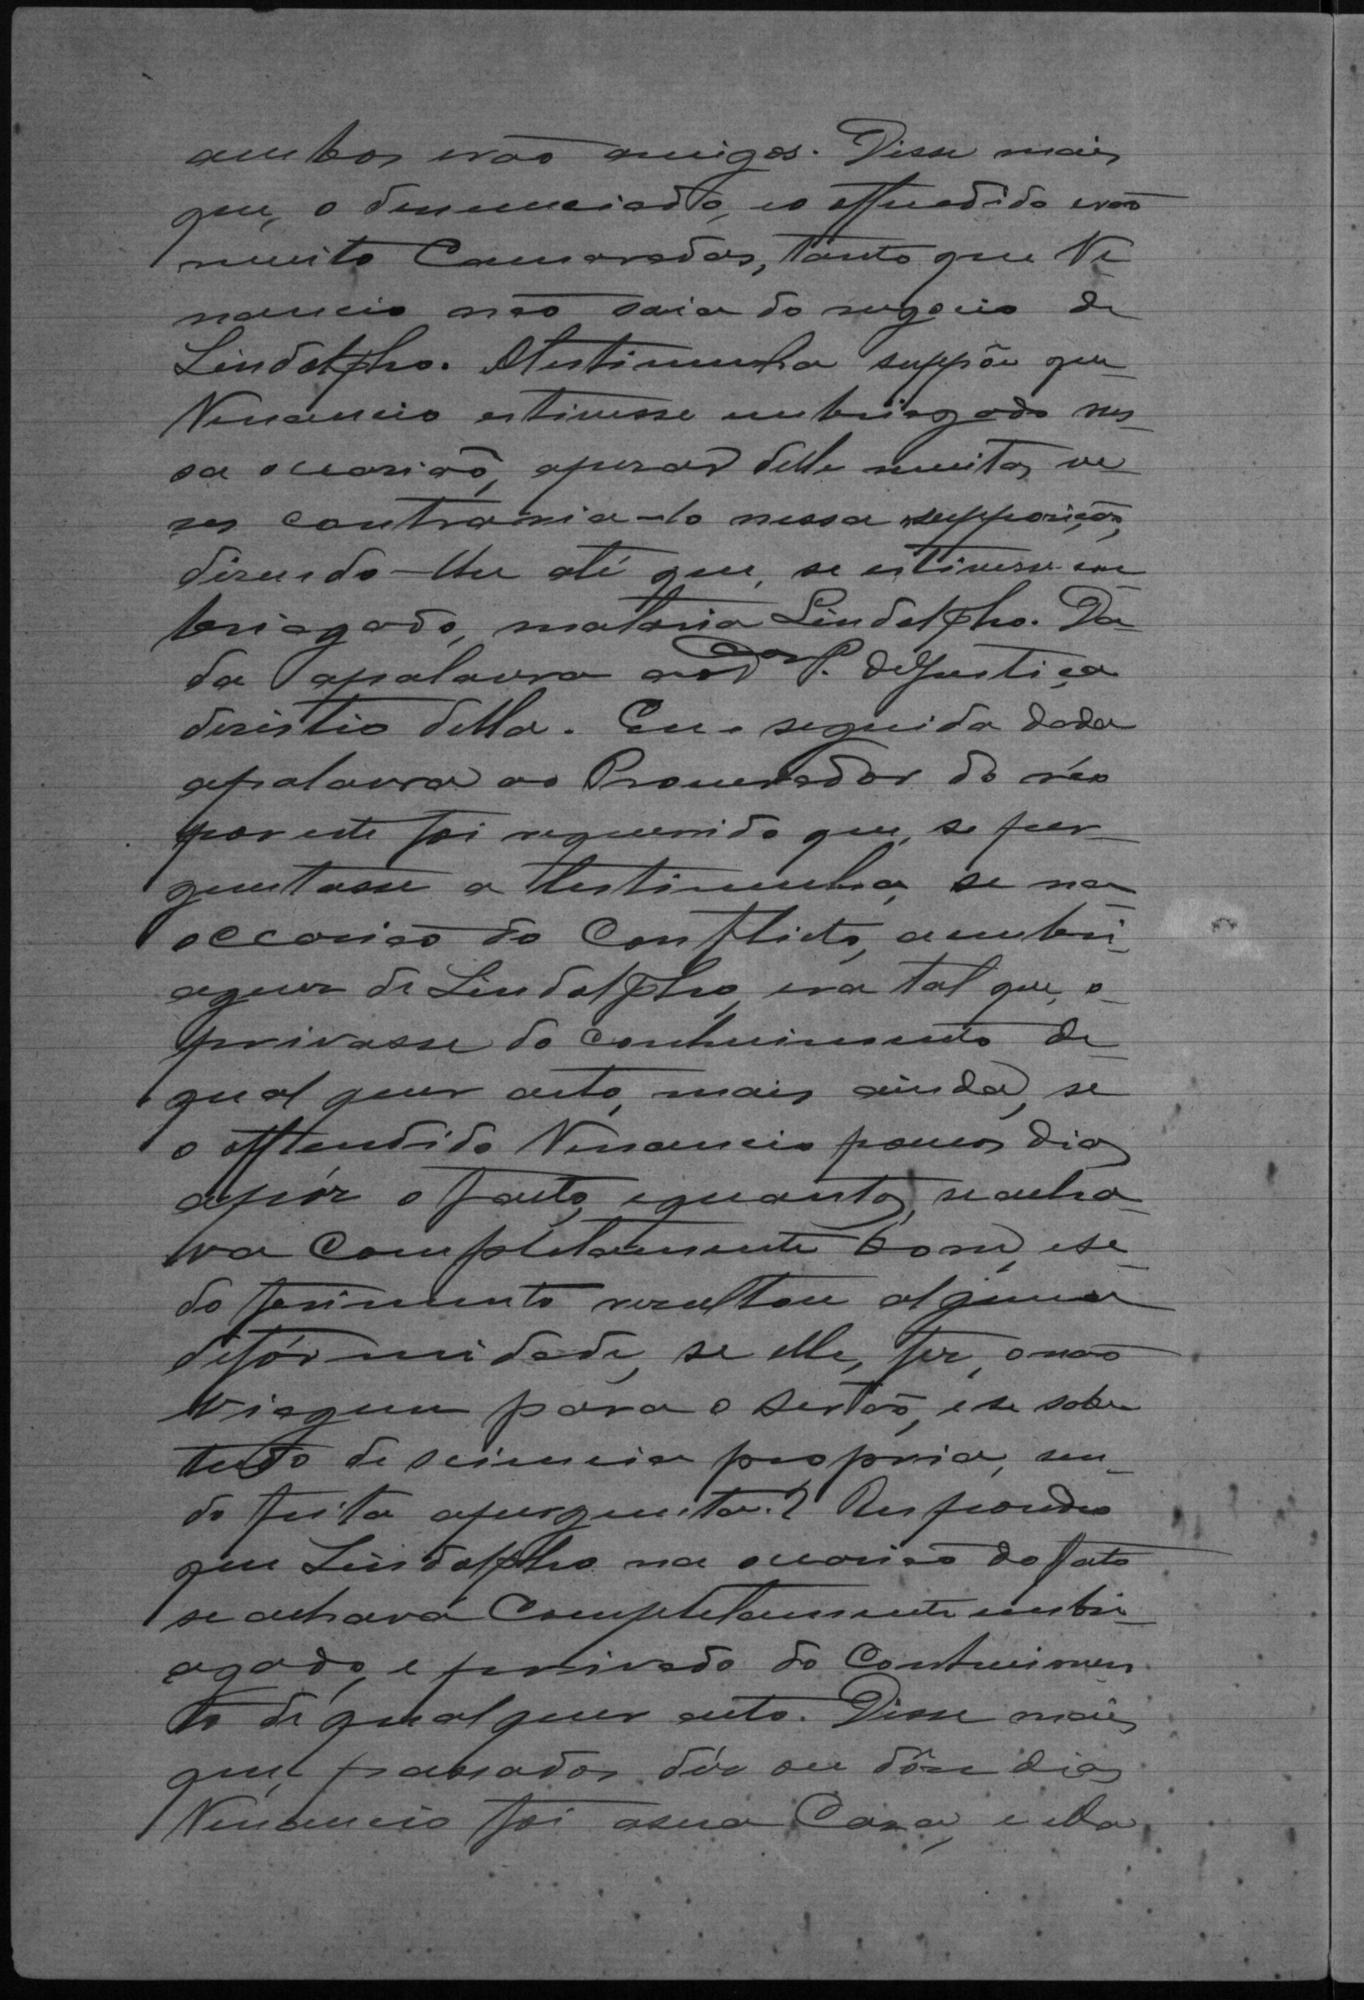 ambos erão amigos. Disse mais
que, o denunciado, eo offendido erão
muito Camaradas, tanto que Ve-
nancio não saia do negocio de
Lindolpho. Atestimunha suppõe que
Venancio estivesse embriagado nes-
sa occasião, apesar delle muitas ve-
ses contraria-lo nessa supposição,
disendo-lhe até que, se estivesse em-
briagado, mataria Lindolpho. Da-
da apalavra ao Dor P. deJustiça
desistio della. Em seguida dada
apalavra ao Procurador do réo
por este foi requerido que, se per-
guntasse a testimunha, se na
occasião do Conflicto, aembri-
aguez de Lindolpho, era tal que, o
privasse do conhecimento de
qual quer acto, mais ainda, se
o offendido Venancio poucos dias
apóz o facto, equantos, seacha-
va Completamente bom, ese
do ferimento resultou alguma
defórmidade, se elle, fez, onão
viagem para o sertão, e se sabe
tudo de sciencia propria, sen-
do feita apergunta? Respondeo
que Lindolpho na occasião do facto
se achava Completamente embri-
agado, e privado do Conhecimen
to de qualquer acto. Disse mais
que, passados déz ou dôse dias
Venancio foi asua Casa, e ella